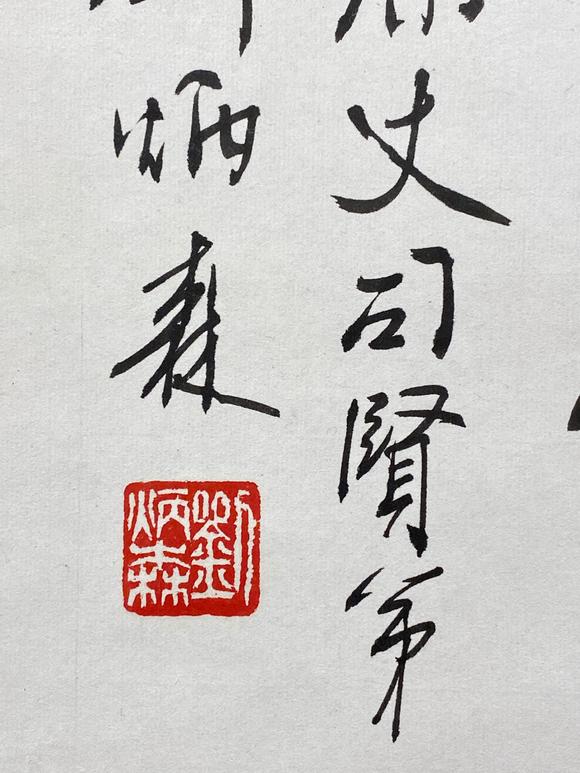 丈司賢弟
炳森
劉
炳森